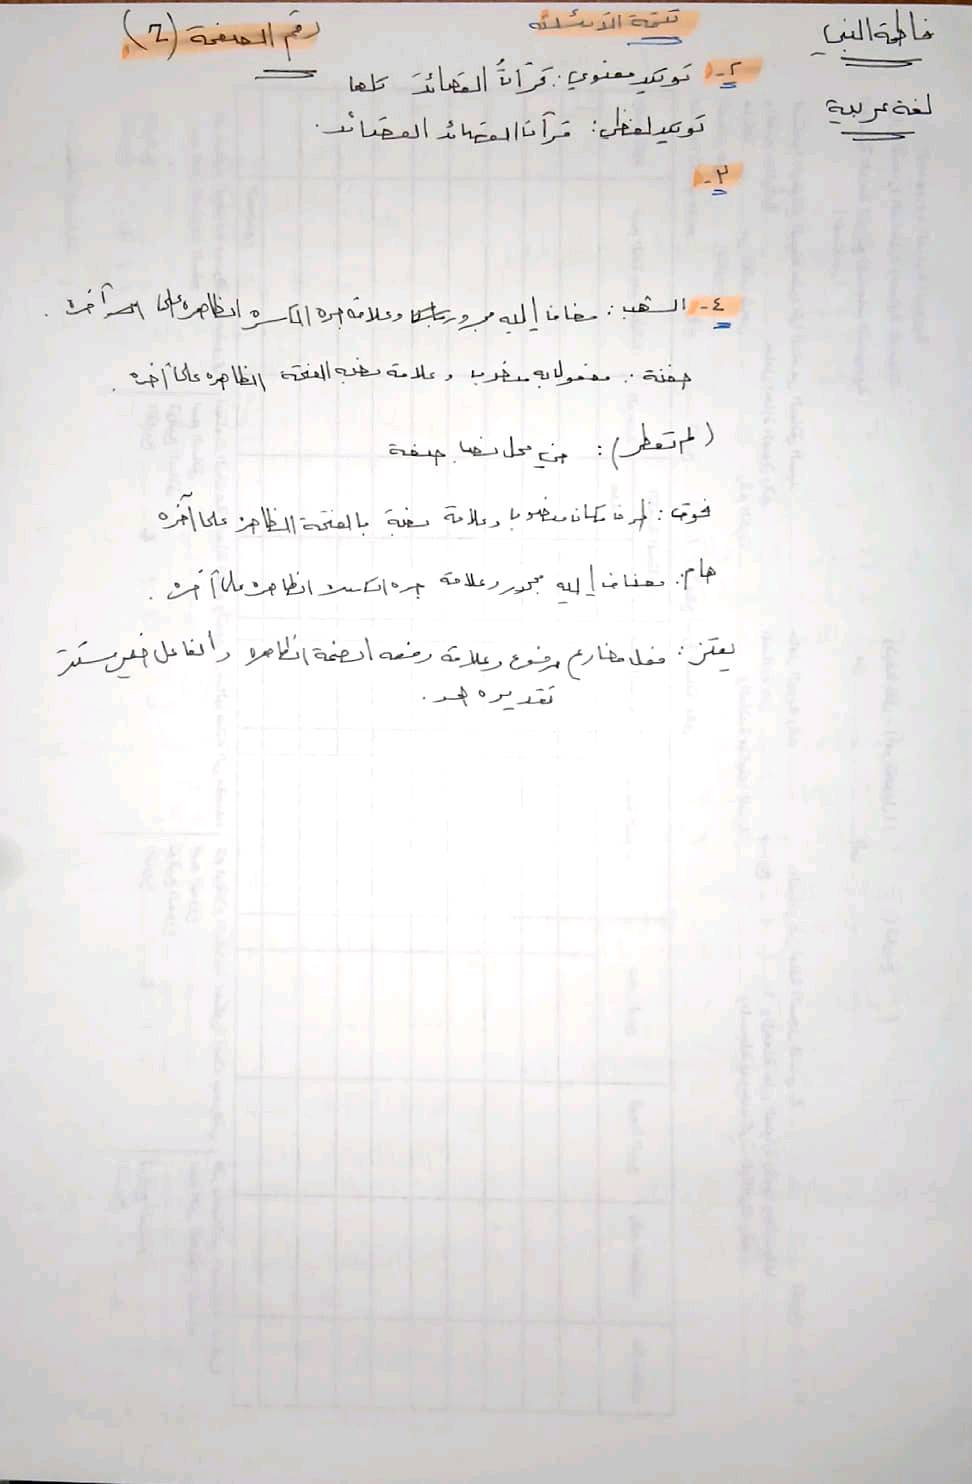 فاطمة النبي
لغة عربية
تتمة الأسئلة
رقم الصفحة (2)
٢- توكيد معنوي: قرأتُ القصائدَ كلها
توكيد لفظي: قرأت القصائد القصائد.
٣-
٤- الشهب: مضاف إليه مجرور وعلامة جره الكسرة الظاهرة على آخره.
جفنة: مفعول به منصوب وعلامة نصبه الفتحة الظاهرة على آخره.
(لم تعطر): في محل نصب صفة
فوق: ظرف مكان منصوب وعلامة نصبة بالفتحة الظاهرة على آخره
هام: مضاف إليه مجرور وعلامة جره الكسرة الظاهرة على آخره.
يعتز: فعل مضارع مرفوع وعلامة رفعه الضمة الظاهرة والفاعل ضمير مستتر
تقديره هو.